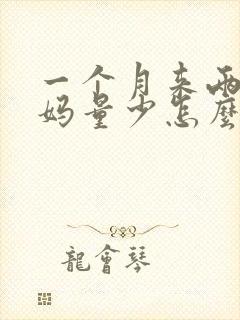 一个月来两
妈量少怎麼
龍會琴